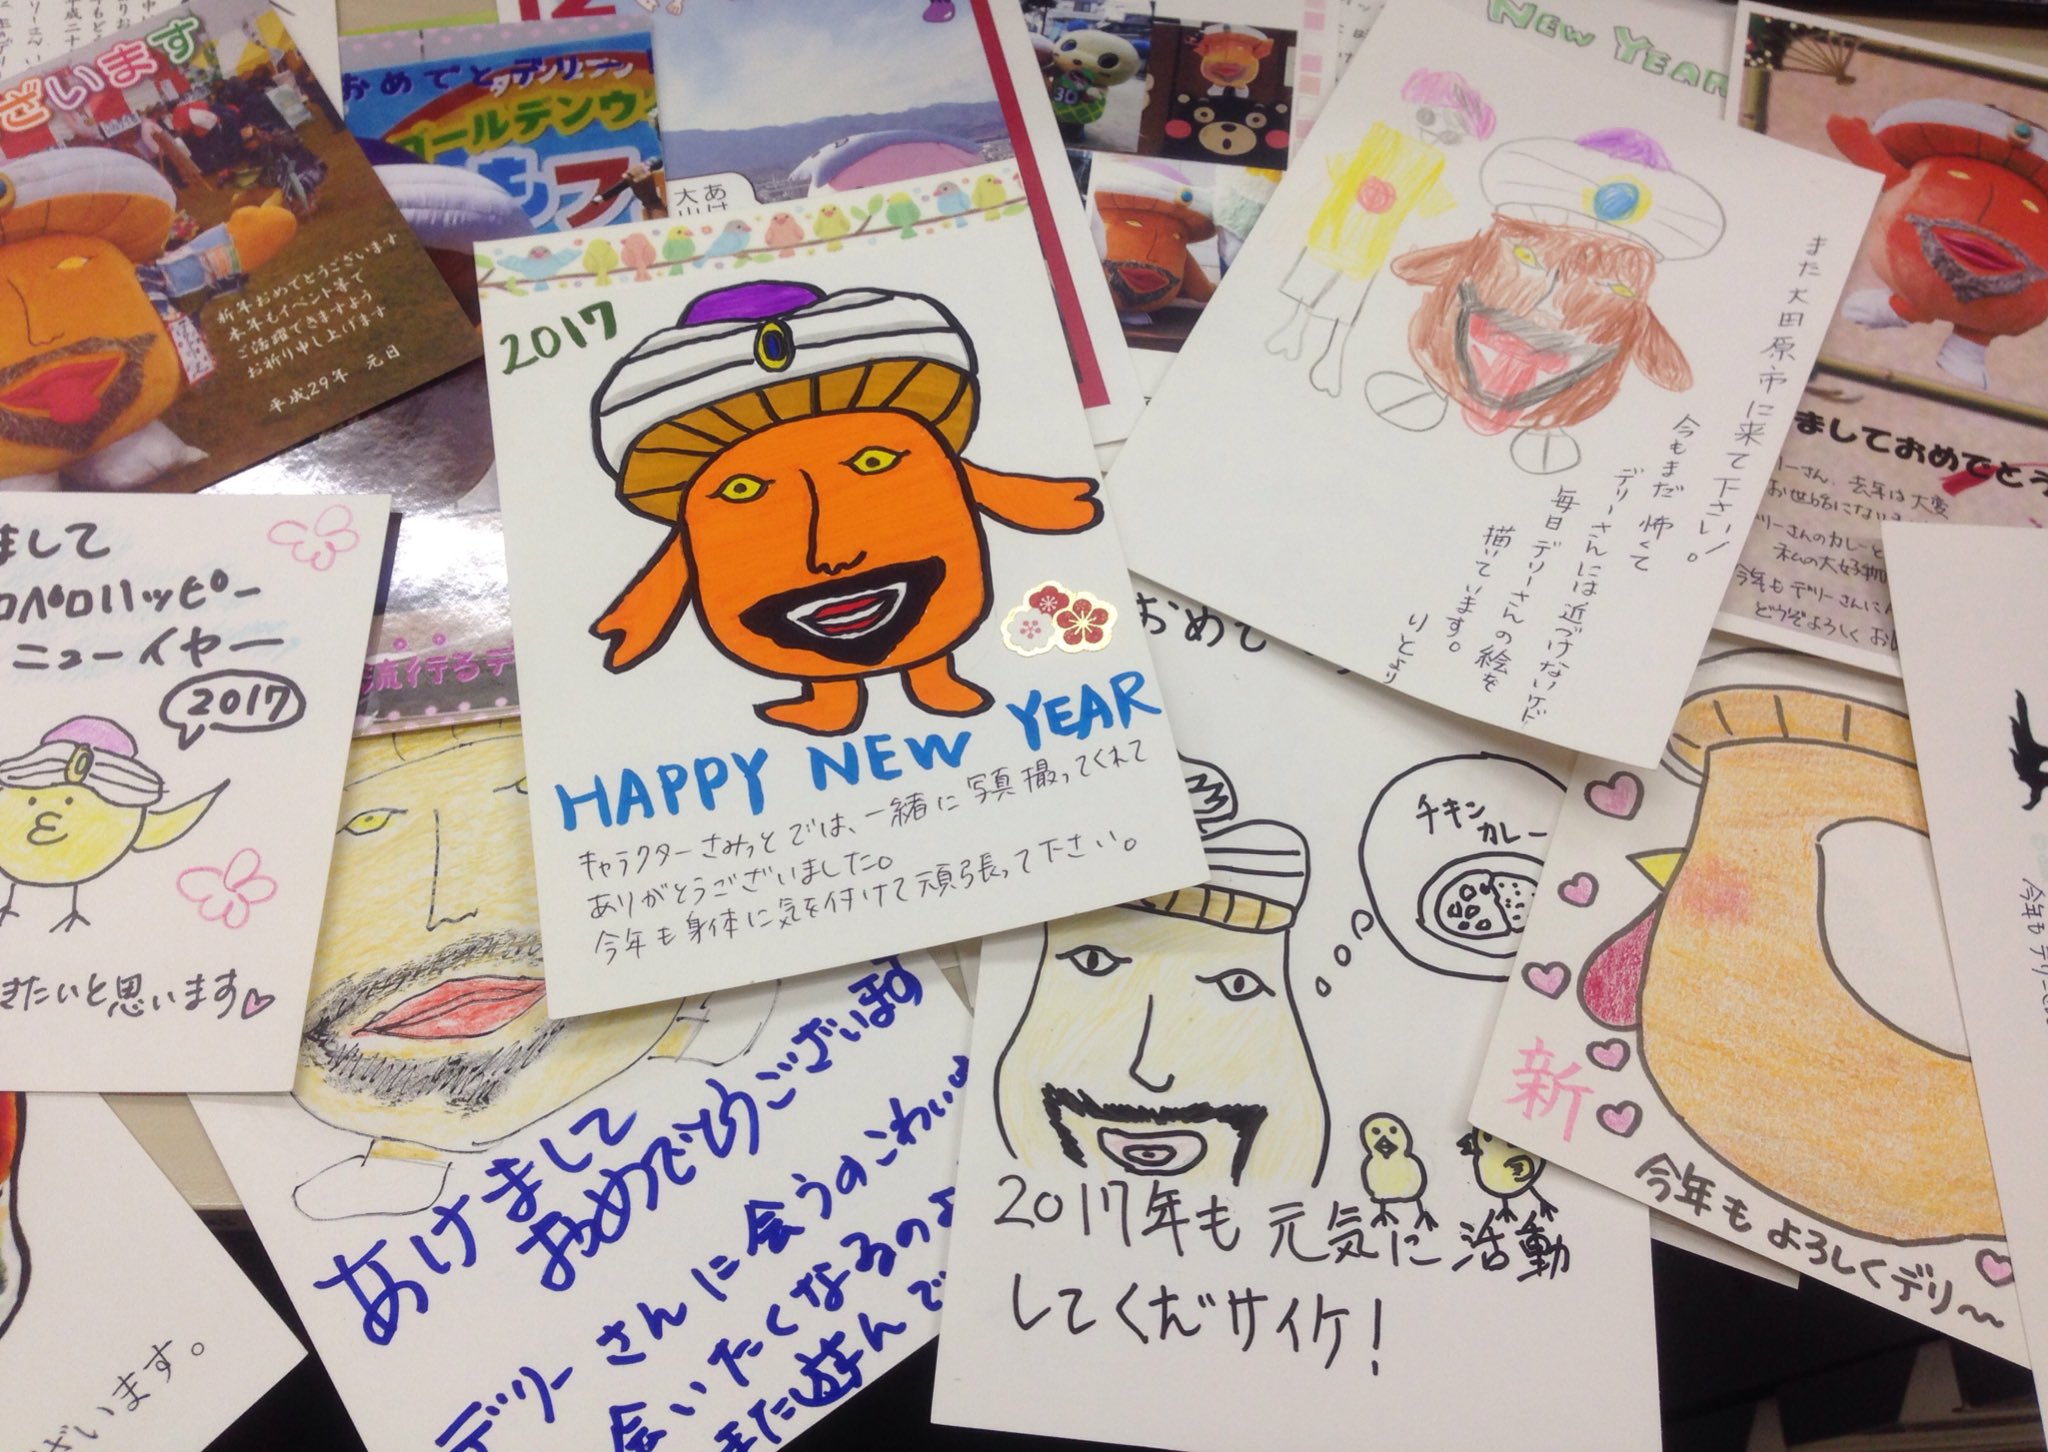 ざいます
新年おめでとうございます
本年もイベント等で
ご活躍できますよう、
お祈り申し上げます
平成29年 元日
おめでとデリーデリ
ゴールデンウ
キフ
大山
30
流行るデ
2017
HAPPY NEW YEAR
キャラクターさみっとでは、一緒に写真撮ってくれて
ありがとうございました。
今年も身体に気を付けて頑張って下さい。
NEW YEAR
また大田原市に来て下さい!
今もまだ怖くて。
デリーさんには近づけないけど
毎日デリーさんの絵を
描いています。
りとより
ましておめでとう
リーさん、去年は大変
お世話にな
リーさんのカレーと
私の大好物
今年もデリーさんに
どうぞよろしくお
まして
ロペロハッピー
ニューイヤー
2017
きたいと思います
あけまして
おめでとうございます
デリーさんに会うのこわいω
会いたくなるのよ
また遊んで
おめで
チキン
カレー
2017年も元気に活動
してくだサイケ!
新
今年もよろしくデリ〜〜
今年もデリー
ざいます。